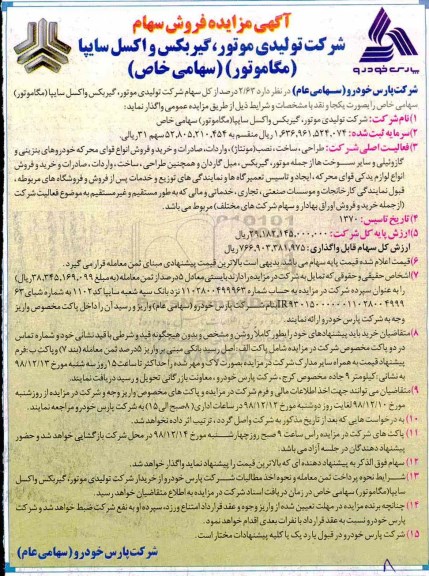 آگهی مزایده فروش سهام
شرکت تولیدی موتور، گیربکس و اکسل سایپا
(مگاموتور) (سهامی خاص)
پارس خودرو
شرکت پارس خودرو (سهامی عام) در نظر دارد ۲/۶۳ درصد از کل سهام شرکت تولیدی موتور، گیربکس واکسل سایپا (مگاموتور)
سهامی خاص را بصورت یکجا و نقد با مشخصات و شرایط ذیل از طریق مزایده عمومی واگذار نماید:
۱) نام شرکت: شرکت تولیدی موتور، گیربکس واکسل سایپا (مگاموتور) سهامی خاص
۲) سرمایه ثبت شده: ۱,۶۳۶,۹۶۱,۵۲۴,۰۷۴ ریال منقسم به ۵۲,۸۰۵,۲۱۰,۴۵۴ سهم ۳۱ ریالی.
۳) فعالیت اصلی شرکت: طراحی، ساخت، نصب (مونتاژ)، واردات، صادرات و خرید و فروش انواع قوای محرکه خودروهای بنزینی و
گازوئیلی و سایر سوخت‌ها از جمله موتور، گیربکس، میل گاردان و همچنین طراحی، ساخت، واردات، صادرات و خرید و فروش
انواع لوازم یدکی قوای محرکه، ایجاد و تاسیس تعمیرگاه ها و نمایندگی های توزیع و خدمات پس از فروش و فروشگاه های مربوطه،
قبول نمایندگی کارخانجات و موسسات صنعتی، تجاری، خدماتی و مالی که به طور مستقیم و غیرمستقیم به موضوع فعالیت شرکت
(از جمله خرید و فروش اوراق بهادار و سهام شرکت های مختلف) مربوط می باشد.
۴) تاریخ تاسیس: ۱۳۷۰
۵) ارزش پایه کل شرکت: ۲۹,۱۸۲,۱۴۵,۰۰۰,۰۰۰ ریال
ارزش کل سهام قابل واگذاری: ۷۶۶,۹۰۳,۳۸۱,۹۷۵ ریال.
۶) قیمت اعلام شده قیمت پایه سهام می باشد. بدیهی است بالاترین قیمت پیشنهادی مبنای ثمن معامله قرار می گیرد.
۷) اشخاص حقیقی و حقوقی که تمایل به شرکت در مزایده را دارند بایستی معادل ۵ درصد از ثمن معامله (به مبلغ ۳۸,۳۴۵,۱۶۹,۰۹۹ ریال)
را به عنوان سپرده شرکت در مزایده به حساب شماره ۱۱۰۲۸۰۰۴۹۹۹۶۳ نزد بانک سپه شعبه سایپا کد ۱۱۰۲ به شماره شبای ۶۳
به نام شرکت پارس خودرو (سهامی عام) واریز و رسید آن را داخل پاکت مخصوص واریز
وجه به شرکت پارس خودرو ارائه نمایند.
۸) متقاضیان خرید باید پیشنهادهای خود را بطور کاملا روشن و مشخص و بدون هیچگونه قید و شرطی با قید نشانی خود و شماره تماس
در دو پاکت مخصوص شرکت در مزایده شامل پاکت الف: اصل رسید بانکی مبنی بر واریز ۵ درصد ثمن معامله (بند ۷) و پاکت ب: فرم
پیشنهاد قیمت به همراه سایر مدارک شرکت در مزایده بصورت لاک و مهر شده را حداکثر تا ساعت ۱۵ روز سه شنبه مورخ ۹۸/۱۲/۱۳
به نشانی: کیلومتر ۹ جاده مخصوص کرج، شرکت پارس خودرو، معاونت بازرگانی تحویل و رسید دریافت نمایند.
۹) متقاضیان می توانند جهت اخذ اطلاعات مالی و فرم شرکت در مزایده و پاکت های مخصوص واریز وجه و شرکت در مزایده از روز شنبه
مورخ ۹۸/۱۲/۱۰ لغایت روز دوشنبه مورخ ۹۸/۱۲/۱۲ در ساعات اداری (۸ صبح الی ۱۵) به شرکت پارس خودرو مراجعه نمایند.
۱۰) به درخواست هایی که بعد از تاریخ مذکور به شرکت واصل گردد، ترتیب اثر داده نخواهد شد.
۱۱) پاکت های شرکت در مزایده راس ساعت ۹ صبح روز چهارشنبه مورخ ۹۸/۱۲/۱۴ در محل شرکت بازگشایی خواهد شد و حضور
پیشنهاد دهندگان در جلسه آزاد می باشد.
۱۲) سهام فوق الذکر به پیشنهاد دهنده ای که بالاترین قیمت را پیشنهاد نماید واگذار خواهد شد.
۱۳) شرایط نحوه پرداخت ثمن معامله و نحوه اخذ مطالبات شرکت پارس خودرو از خریدار شرکت تولیدی موتور، گیربکس واکسل
سایپا (مگاموتور) سهامی خاص در زمان دریافت اسناد شرکت در مزایده به اطلاع متقاضیان خواهد رسید.
۱۴) چنانچه برنده مزایده در مهلت تعیین شده از واریز وجوه و عقد قرارداد امتناع ورزد، سپرده او به نفع شرکت ضبط خواهد شد و شرکت
پارس خودرو نسبت به عقد قرارداد با نفرات بعدی اقدام خواهد نمود.
۱۵) شرکت پارس خودرو در قبول یا رد یک یا کلیه پیشنهادات مختار است.
شرکت پارس خودرو (سهامی عام)